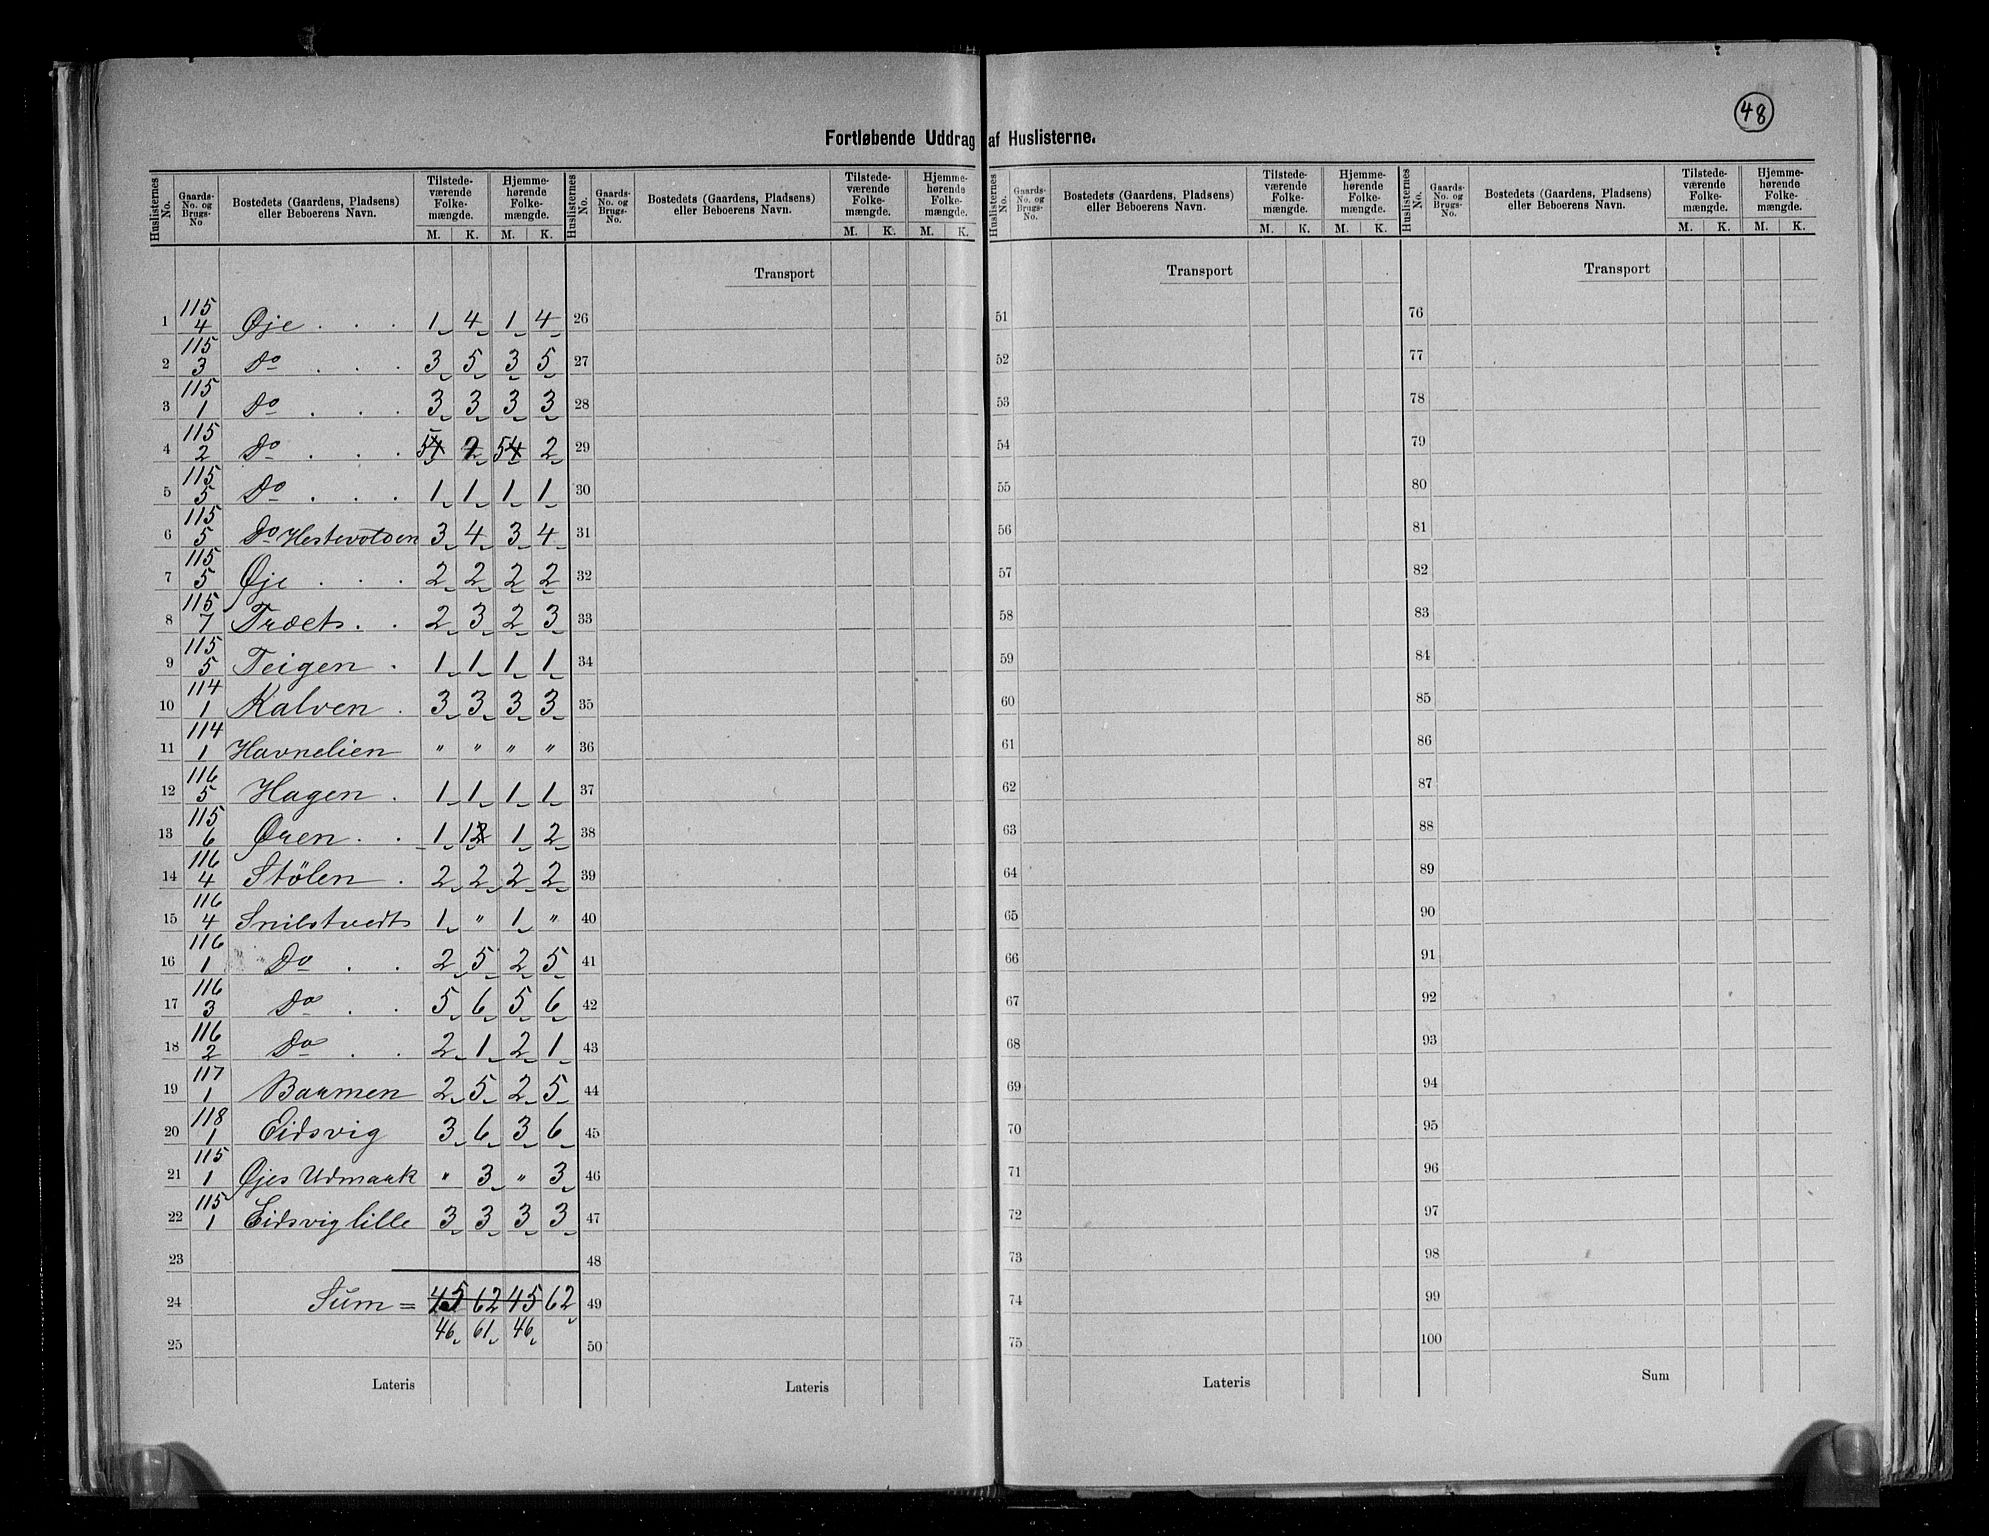 48
Fortløbende Uddrag af Huslisterne.
Huslisternes No. | Gaards-No. og Brugs-No | Bostedets (Gaardens, Pladsens) eller Beboerens Navn. | Tilstedeværende Folkemængde. M. K. | Hjemmehørende Folkemængde. M. K.
Huslisternes No. | Gaards-No. og Brugs-No. | Bostedets (Gaardens, Pladsens) eller Beboerens Navn. | Tilstedeværende Folkemængde. M. K. | Hjemmehørende Folkemængde. M. K.
Huslisternes No. | Gaards-No. og Brugs-No. | Bostedets (Gaardens, Pladsens) eller Beboerens Navn. | Tilstedeværende Folkemængde. M. K. | Hjemmehørende Folkemængde. M. K.
Huslisternes No. | Gaards-No. og Brugs-No. | Bostedets (Gaardens, Pladsens) eller Beboerens Navn. | Tilstedeværende Folkemængde. M. K. | Hjemmehørende Folkemængde. M. K.
Transport Transport Transport
1 115/4 Øje . . . 1 4 1 4 26 51 76
2 115/3 Do . . . 3 5 3 5 27 52 77
3 115/1 Do . . . 3 3 3 3 28 53 78
4 115/2 Do . . . 5 2 5 4 2 29 54 79
5 115/5 Do . . . 1 1 1 1 30 55 80
6 115/5 Do Hestevolden 3 4 3 4 31 56 81
7 115/5 Øje . . . 2 2 2 2 32 57 82
8 115/7 Træet . . 2 3 2 3 33 58 83
9 115/5 Teigen . 1 1 1 1 34 59 84
10 114/1 Kalven . 3 3 3 3 35 60 85
11 114/1 Havnelien " " " " 36 61 86
12 116/5 Hagen . 1 1 1 1 37 62 87
13 115/6 Øren . . 1 1 2 1 2 38 63 88
14 116/4 Stølen . 2 2 2 2 39 64 89
15 116/4 Snilstvedt 1 " 1 " 40 65 90
16 116/1 Do . . 2 5 2 5 41 66 91
17 116/3 Do . . 5 6 5 6 42 67 92
18 116/2 Do . . 2 1 2 1 43 68 93
19 117/1 Baarmen 2 5 2 5 44 69 94
20 118/1 Eidsvig 3 6 3 6 45 70 95
21 115/1 Øjes Udmaak " 3 " 3 46 71 96
22 115/1 Eidsvig lille 3 3 3 3 47 72 97
23 48 73 98
24 Sum = 45 62 45 62 49 74 99
25 46 61 46 50 75 100
Lateris Lateris Lateris Sum